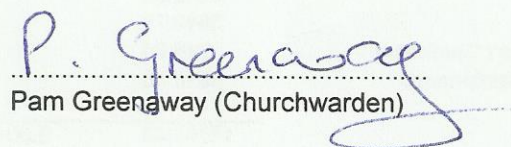 P. Greenaway
Pam Greenaway (Churchwarden)